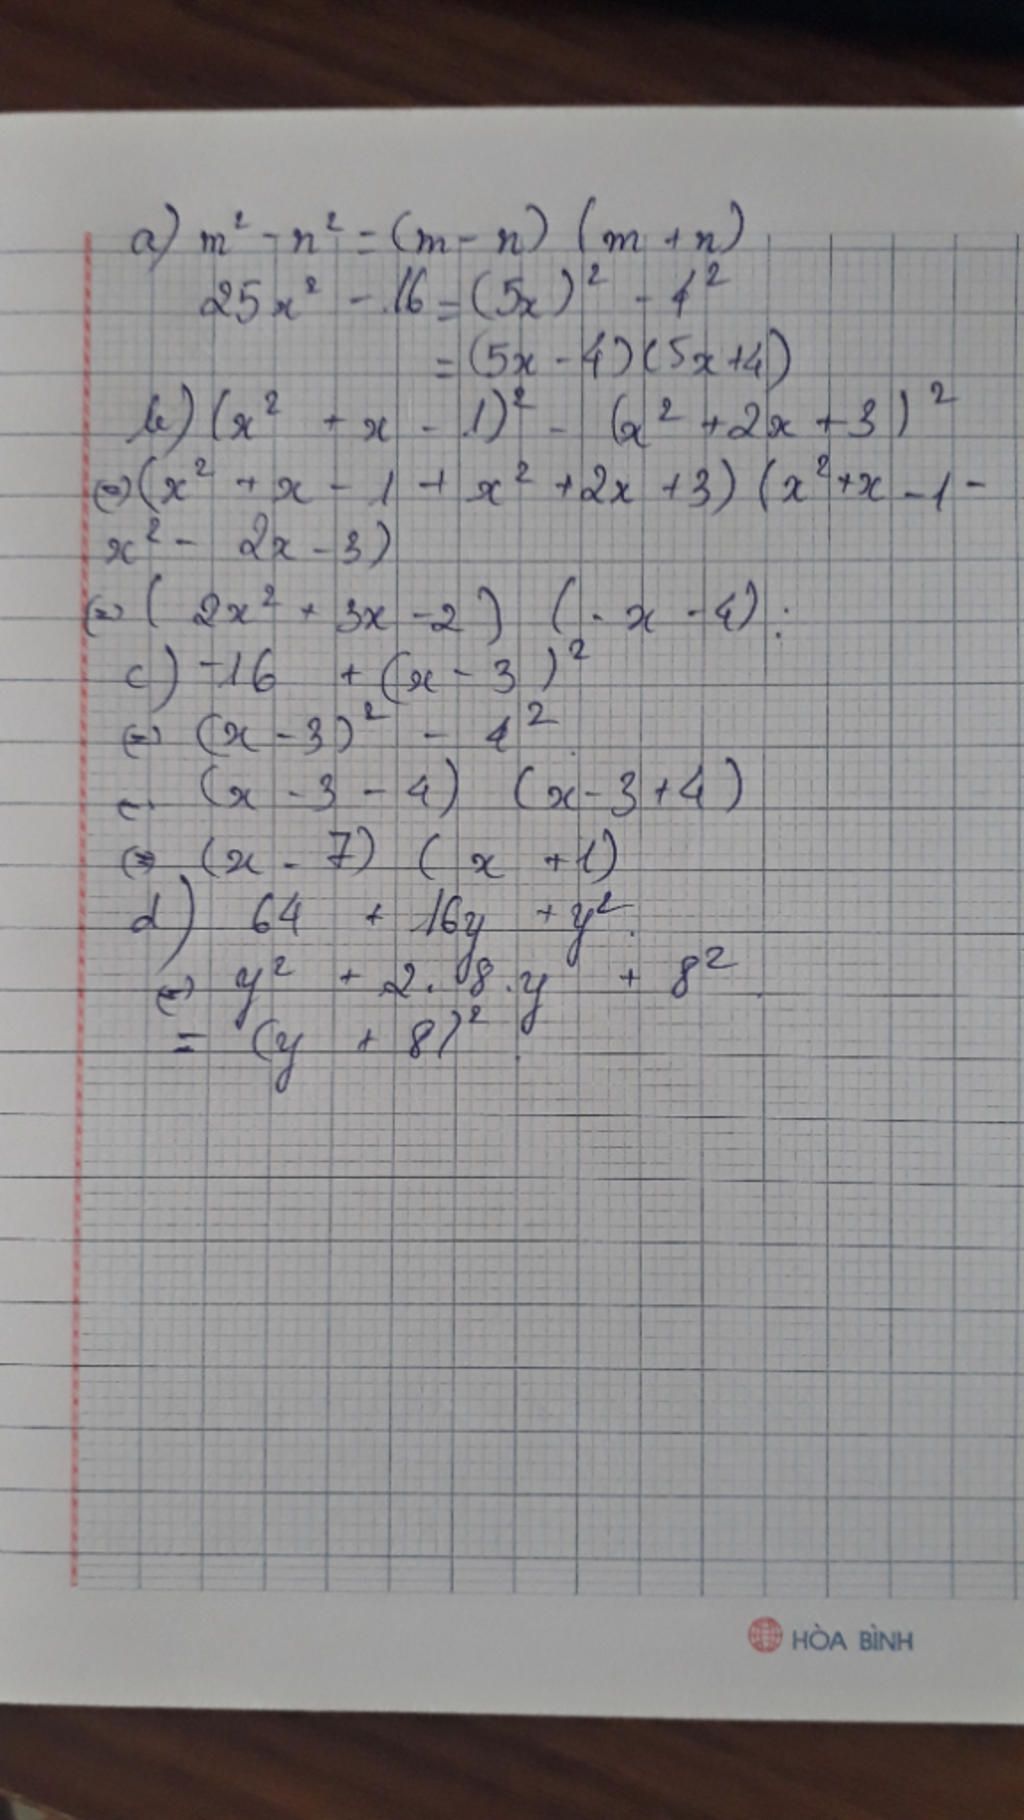 a) m² - n² = (m - n) (m + n)
25x² - 16 = (5x)² - 4²
= (5x - 4)(5x + 4)
b) (x² + x - 1)² - (x² + 2x + 3)²
(=) (x² + x - 1 + x² + 2x + 3) (x² + x - 1 -
x² - 2x - 3)
(=) (2x² + 3x - 2) (- x - 4).
c) -16 + (x - 3)²
(=) (x - 3)² - 4².
(=) (x - 3 - 4) (x - 3 + 4)
(=) (x - 7) (x + 1)
d) 64 + 16y + y².
(=) y² + 2. 8 .y + 8².
= (y + 8)².
HÒA BÌNH